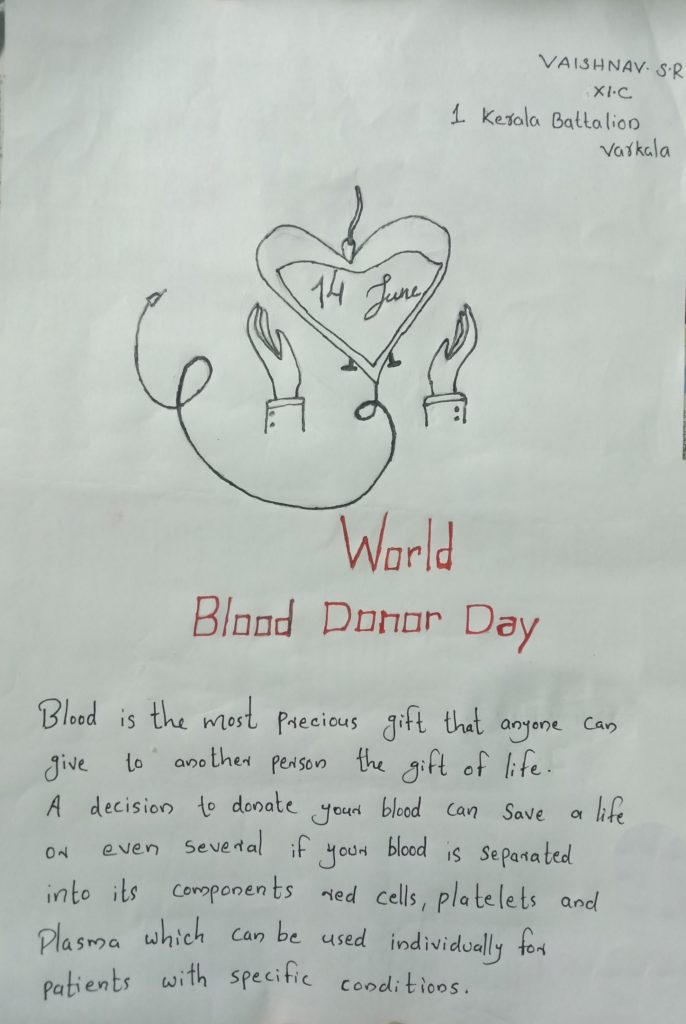 VAISHNAV. S.R
XI.C
1 Kerala Battalion
Varkala
14 June
World
Blood Donor Day
Blood is the most precious gift that anyone can
give to another person the gift of life.
A decision to donate your blood can save a life
or even several if your blood is separated
into its components red cells, platelets and
Plasma which can be used individually for
patients with specific conditions.